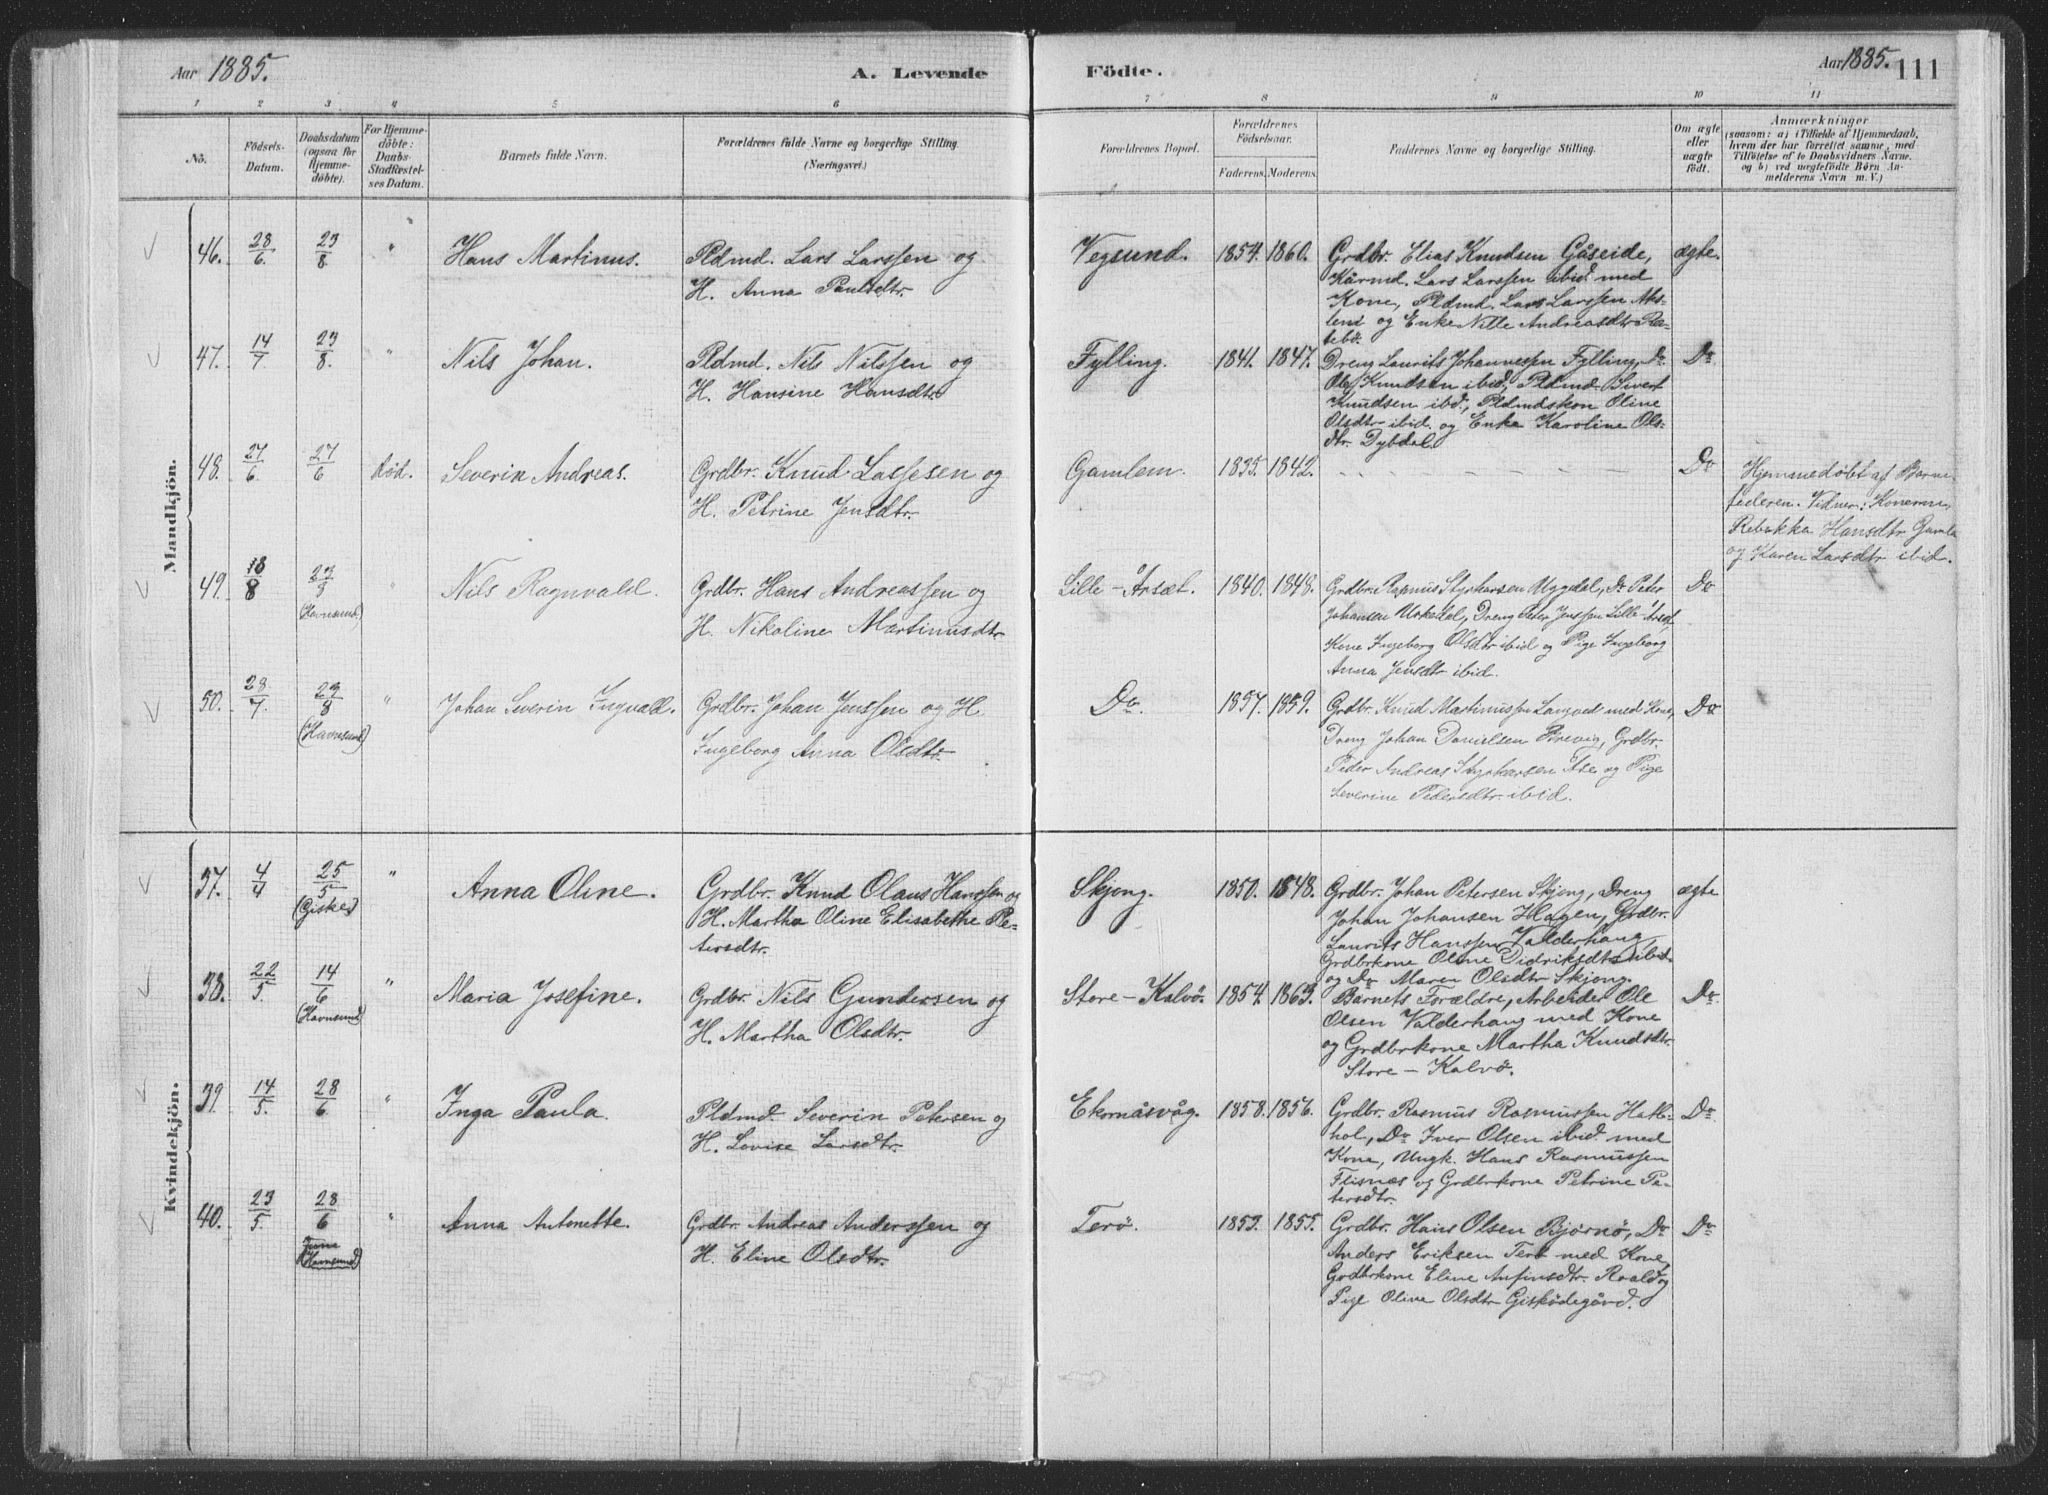 Aar 1885.
A. Levende
Födte.
Aar 1885.
111
1 2 3 4 5 6 7 8 9 10 11
No.
Födsels-
Datum.
Daabsdatum
(ogsaa for
Hjemme-
døbte).
For Hjemme-
døbte:
Daabs-
Stadfæstel-
ses Datum.
Barnets fulde Navn.
Forældrenes fulde Navne og borgerlige Stilling.
(Næringsvei.)
Forældrenes Bopæl.
Forældrenes
Födselsaar.
Faderens. Moderens.
Faddernes Navne og borgerlige Stilling.
Om ægte
eller
uægte
födt.
Anmærkninger
(saasom: a) i Tilfælde af Hjemmedaab,
hvem der har forrettet samme, med
Tilföielse af to Daabsvidners Navne,
og b) ved uægtefödte Börn An-
melderens Navn m. V.)
Mandkjön.
46. 28/6 23/8 "
Hans Martinus.
Pldmd. Lars Larssen og
H. Anna Paulsdtr.
Vegsund. 1854. 1860.
Grdbr. Elias Knudsen Gåseide,
Kårmd. Lars Larssen ibid. med
Kone, Pldmd. Lars Larssen Aks-
lent og Enke Nille Andreasdtr Ra-
tebö.
ægte.
47. 14/7 23/8. "
Nils Johan.
Pldmd. Nils Nilssen og
H. Hansine Hansdtr.
Fylling. 1841. 1847.
Dreng Laurits Johannessen Fylling, Do
Ole Knudsen ibid, Pldmd. Sivert
Knudsen ibd., Pldmdskon Oline
Olsdtr ibid. og Enke Karoline Ols-
dtr. Dybdal.
Do
48. 27/6. 27/6 död.
Severin Andreas.
Grdbr. Knud Lassesen og
H. Petrine Jensdtr.
Gamlem. 1835. 1842.
Do
Hjemmedøbt af Barne-
faderen. Vidner: Konerne
Rebekka Hansdtr Gamle
og Karen Larsdtr ibid.
49. 18/8 23/8 (Havnsund) "
Nils Ragnvald.
Grdbr. Hans Andreassen og
H. Nikoline Martinusdtr
Lille-Årsæt. 1840. 1848.
Grdbr. Rasmus Styrkarsen Uggedal, Do Peter
Johansen Urkedal, Dreng Peter Jenssen Lille Årset,
Kone Ingeborg Olsdtr ibid og Pige Ingeborg
Anna Jensdtr ibid.
Do
50. 28/7. 23/8 (Havnsund) "
Johan Severin Ingvald.
Grdbr. Johan Jenssen og H.
Ingeborg Anna Olsdtr.
Do. 1857. 1859.
Grdbr. Knud Martinussen Langved med Kone,
Dreng Johan Danielsen Brevig, Grdbr.
Peder Andreas Styrkarsen Ase og Pige
Severine Pedersdtr. ibid.
Do
Kvindekjön.
37. 4/4 25/5 (Giske) "
Anna Oline.
Grdbr. Knud Olaus Hanssen og
H. Martha Oline Elisabethe Pe-
tersdtr.
Skjong. 1850. 1848.
Grdbr. Johan Petersen Skjong, Dreng
Johan Johansen Hagen, Grdbr.
Laurits Hanssen Valderhaug,
Grdbrkone Oline Didriksdtr ibid.
og Do Maren Olsdtr Skjong.
ægte
38. 22/5. 14/6 (Havnsund) "
Maria Josefine.
Grdbr. Nils Gundersen og
H. Martha Olsdtr.
Store-Kalvö. 1854. 1863.
Barnets Forældre, Arbeider Ole
Olsen Valderhaug med Kone
og Grdbrkone Martha Knudsdtr.
Store-Kalvö.
Do.
39. 14/5. 28/6. "
Inga Paula.
Pldmd. Severin Petersen og
H. Lovise Larsdtr.
Ekornåsvåg. 1858. 1856.
Grdbr. Rasmus Rasmussen Hatle-
hol, Do Iver Olsen ibid. med
Kone, Ungk. Hans Rasmussen
Flisnes og Grdbrkone Petrine Pe-
tersdtr.
Do
40. 23/5 28/6 (Havnsund) "
Anna Antonette.
Grdbr. Andreas Anderssen og
H. Eline Olsdtr.
Terö. 1853. 1855.
Grdbr. Hans Olsen Bjørnö, Do
Anders Eriksen Terö med Kone,
Grdbrkone Eline Anfinsdtr. Roald og
Pige Olive Olsdtr Gisködegård.
Do